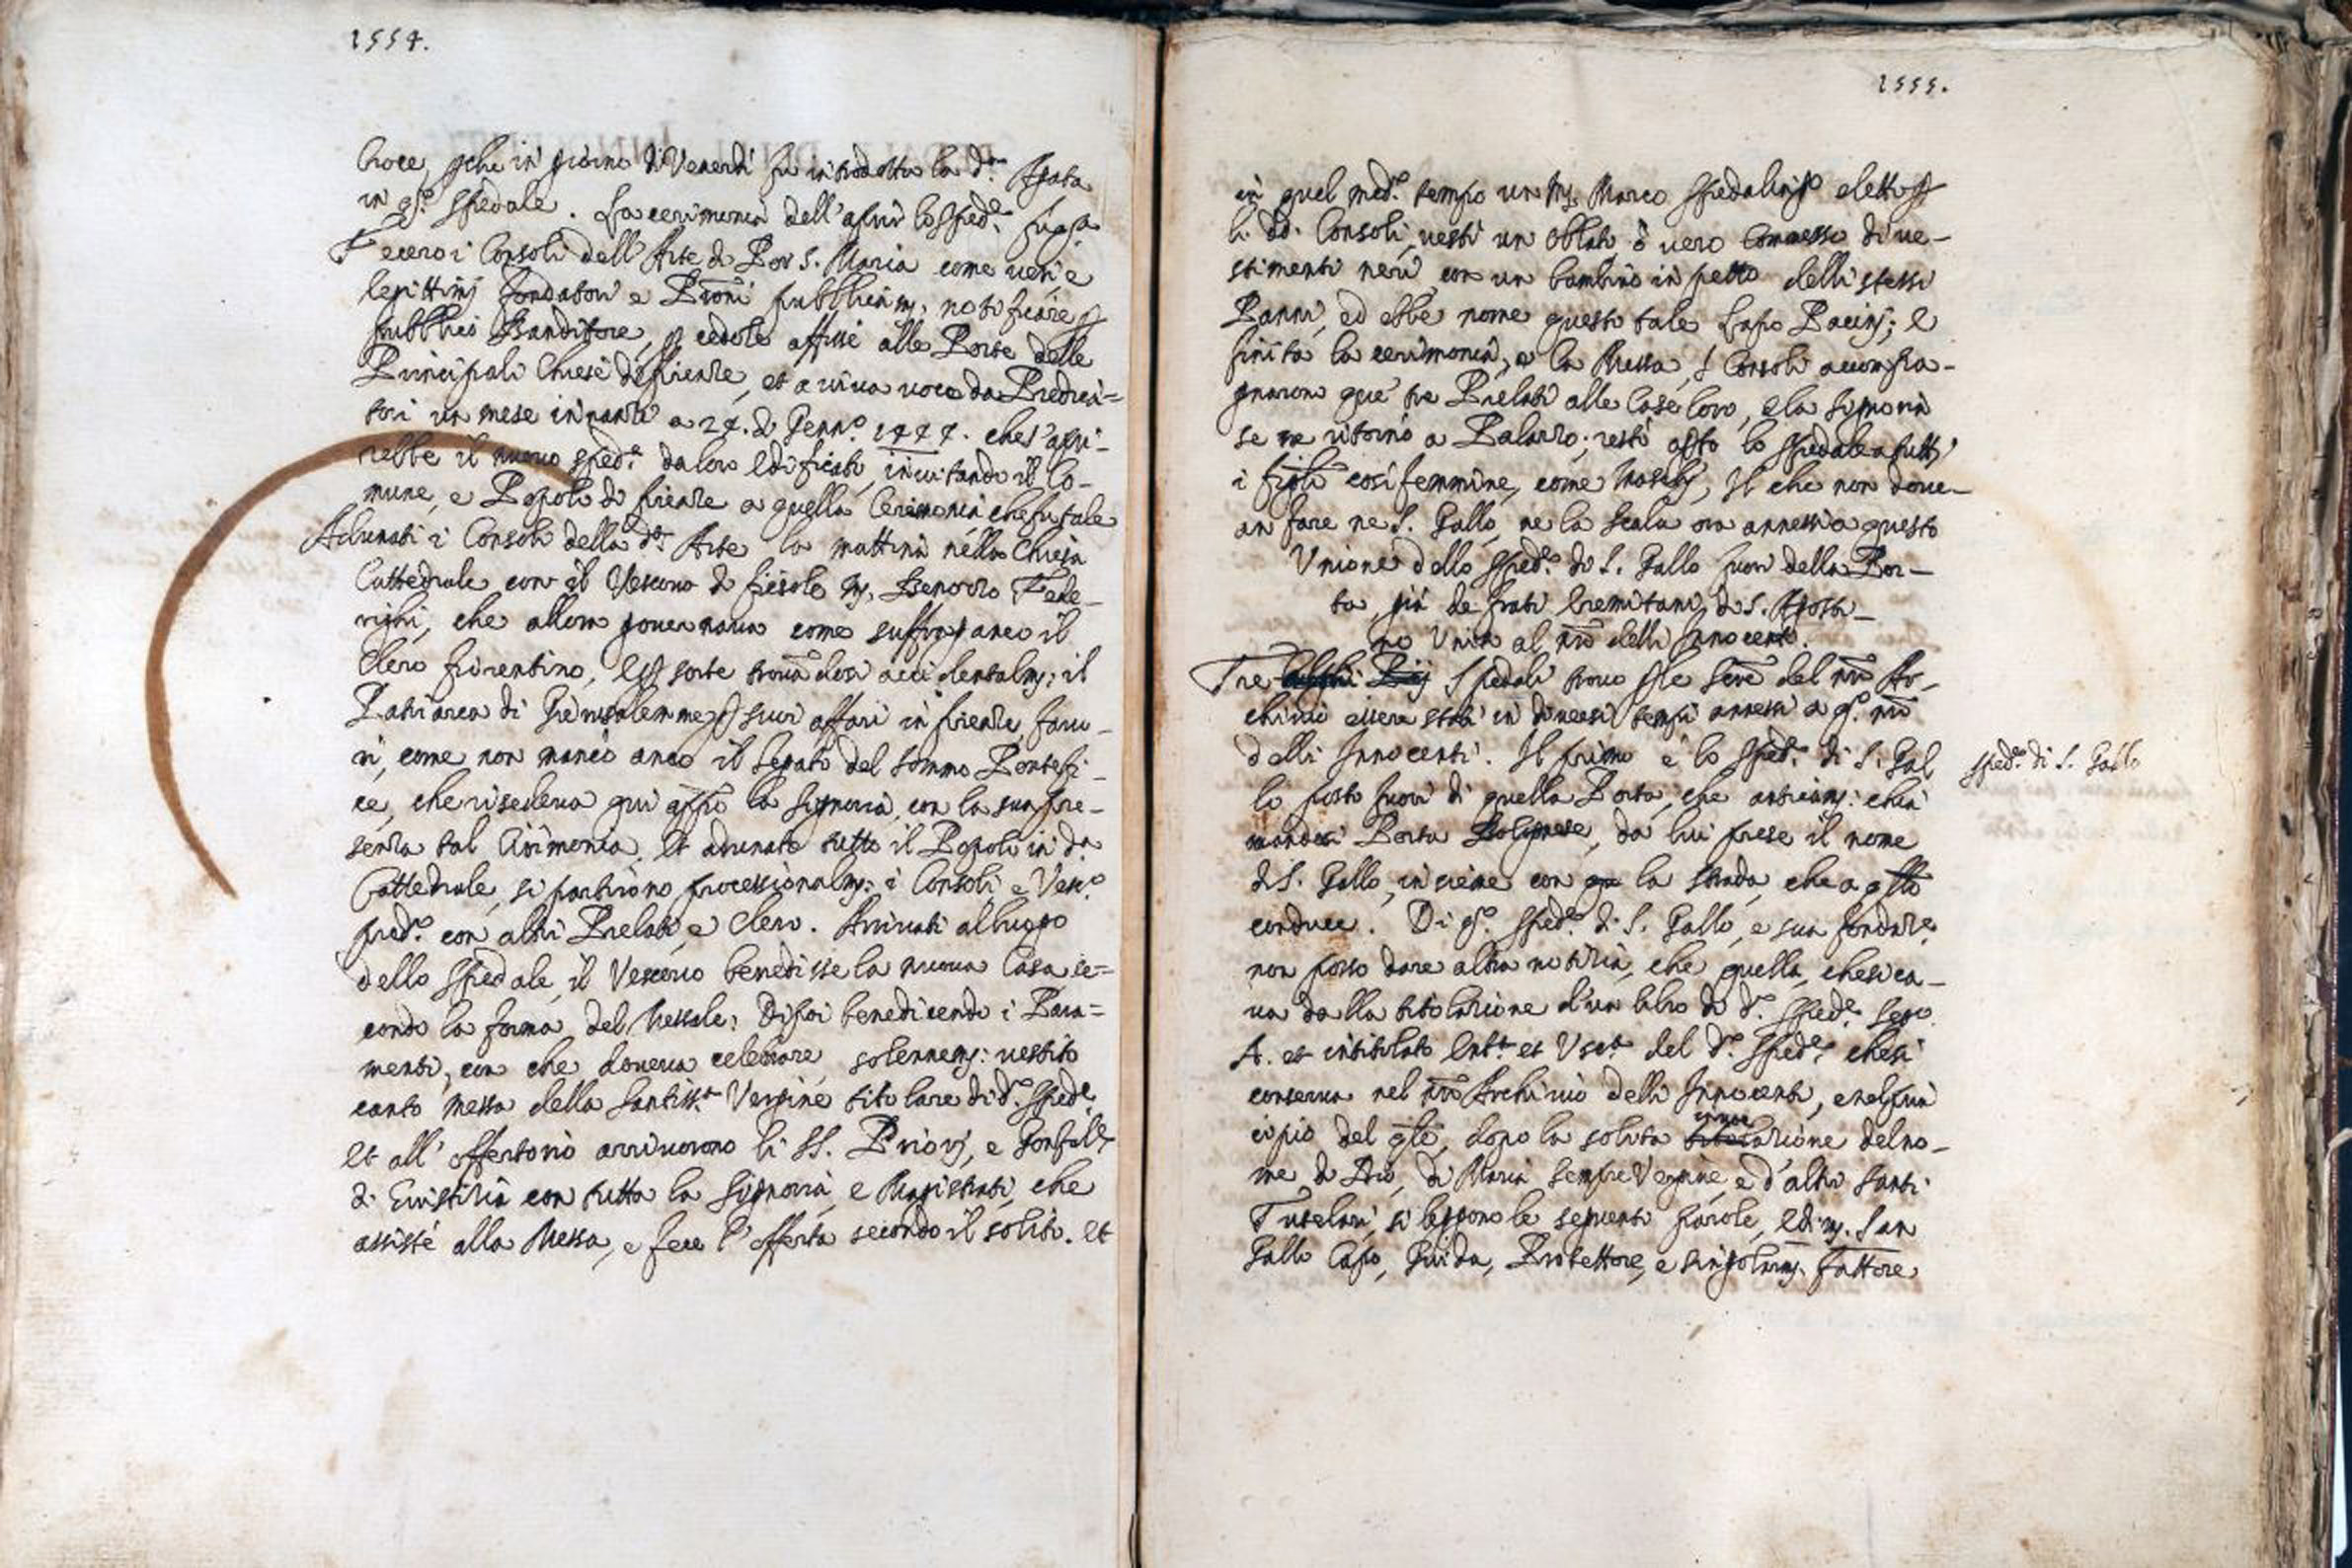 1554.
Croce, pche in giorno di Venerdi fu introdotta la d.ª Agata
in q.º spedale. La cerimonia dell'aprir lo Sped.e fu q.ª
Fecero i Consoli dell'Arte di Por S. Maria come veri, e
legittimj fondatori e Proni pubblicam; notificare p
pubblico Banditore, p cedole affisse alle Porte delle
Principali Chiese di firenze, et a viva voce da Predica=
tori un mese innanzi a 24. di Genn.º 1444. che s'apri-
rebbe il nuovo sped.e da loro edificato, invitando il Co-
mune, e Popolo di firenze a quella Cerimonia che fu tale
Adunati i Consoli della d.ª Arte la mattina nella Chiesa
Cattedrale con il Vescovo di fiesole M. Benozzo Fede-
righi, che allora governava come suffraganeo il
Clero fiorentino, e p sorte trovandosi accidentalm: il
Patriarca di Gierusalemme p suoi affari in firenze, favo-
ri, come non mancò anco il Legato del sommo Pontefi-
ce, che risedeva qui appo la Signoria, con la sua pre-
senza tal Cirimonia. Et adunato tutto il Popolo in d.ª
Cattedrale, si partirono processionalm: i Consoli e Vesc.º
pred.º con altri Prelati, e Clero. Arrivati al luogo
dello Spedale, il Vescovo benedisse la nuova Casa se=
condo la forma del Messale: Dipoi benedicendo i Para=
menti, con che doveva celebrare solennem: vestito
canto messa della Santiss.ª Vergine titolare di d.º Sped.e
et all'offertorio arrivorono li SS. Priorj, e Gonfal.e
di Giustizia con tutta la Signoria, e Magistrati, che
assiste alla Messa, e fece l'offerta secondo il solito. et
1555.
in quel med.º tempo un M. Marco Spedalingº eletto p
li dd. Consoli, vesti un Oblato ò vero Commesso di ve-
stimenti neri con un bambino in petto delli stessi
Panni, ed ebbe nome questo tale Lapo Pacinj; e
finita la cerimonia, e la Messa, i Consoli accompa-
gnaron que' tre Prelati alle Case loro, e la Signoria
se ne ritornò a Palazzo; restò apto lo Spedale a tutti
i figli così femmine, come Maschj, il che non dove-
an fare ne S. Gallo, ne la Scala ora annessi a questo
Unione dello Sped.e di S. Gallo fuori della Por-
ta, già de frati Eremitani di S. Agosti-
no Unito al nro delli Innocenti.
Tre Spedali trovo p le scre del nro Ar-
chivio essere stati in diversi tempi annessi a q.º nro
delli Innocenti. Il primo è lo Sped.e di S. Gal
lo posto fuori di quella Porta, che anticam: chia
mandosi Porta Bolognese, da lui prese il nome
di S. Gallo, insieme con la strada, che a qsto
conduce. Di q.º Sped.e di S. Gallo, e sua fondaze,
non posso dare altra notizia, che quella, che si ca-
va dalla titolazione d'un libro di d.º Sped.e Segº.
A. et intitolato Entª et Uscª del d.º Sped.e che si
conserva nel nro Archivio delli Innocenti, e nel prin
cipio del qle, dopo la solita invocazione del no-
me di Dio, di Maria sempre Vergine, e d'altri Santi
Tutelari, si leggono le seguenti parole, e di m. San
Gallo Capo, Guida, Protettore, e singolarm. fattore
Sped.e di S. Gallo